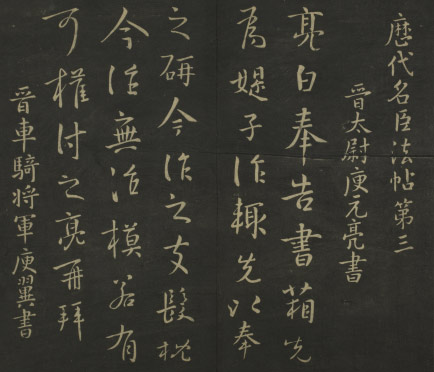 歷代名臣法帖第三
晋太尉庾元亮書
亮白奉告書葙先
為媞子作輒先以奉
之研今作之支髮枕
今活無活模若有
可權付之亮再拜
晋車騎将軍庾翼書